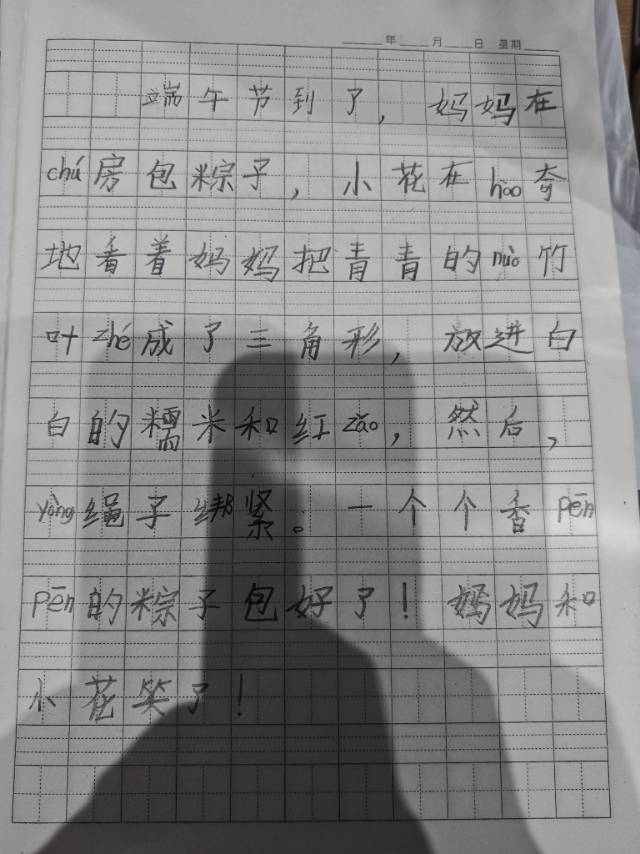 年 月 日 星期
端午节到了，妈妈在
chú房包粽子，小花在hào奇
地看着妈妈把青青的nuò竹
叶zhé成了三角形，放进白
白的糯米和红zǎo，然后，
yòng绳子绑紧。一个个香pēn
pēn的粽子包好了！妈妈和
小花笑了！